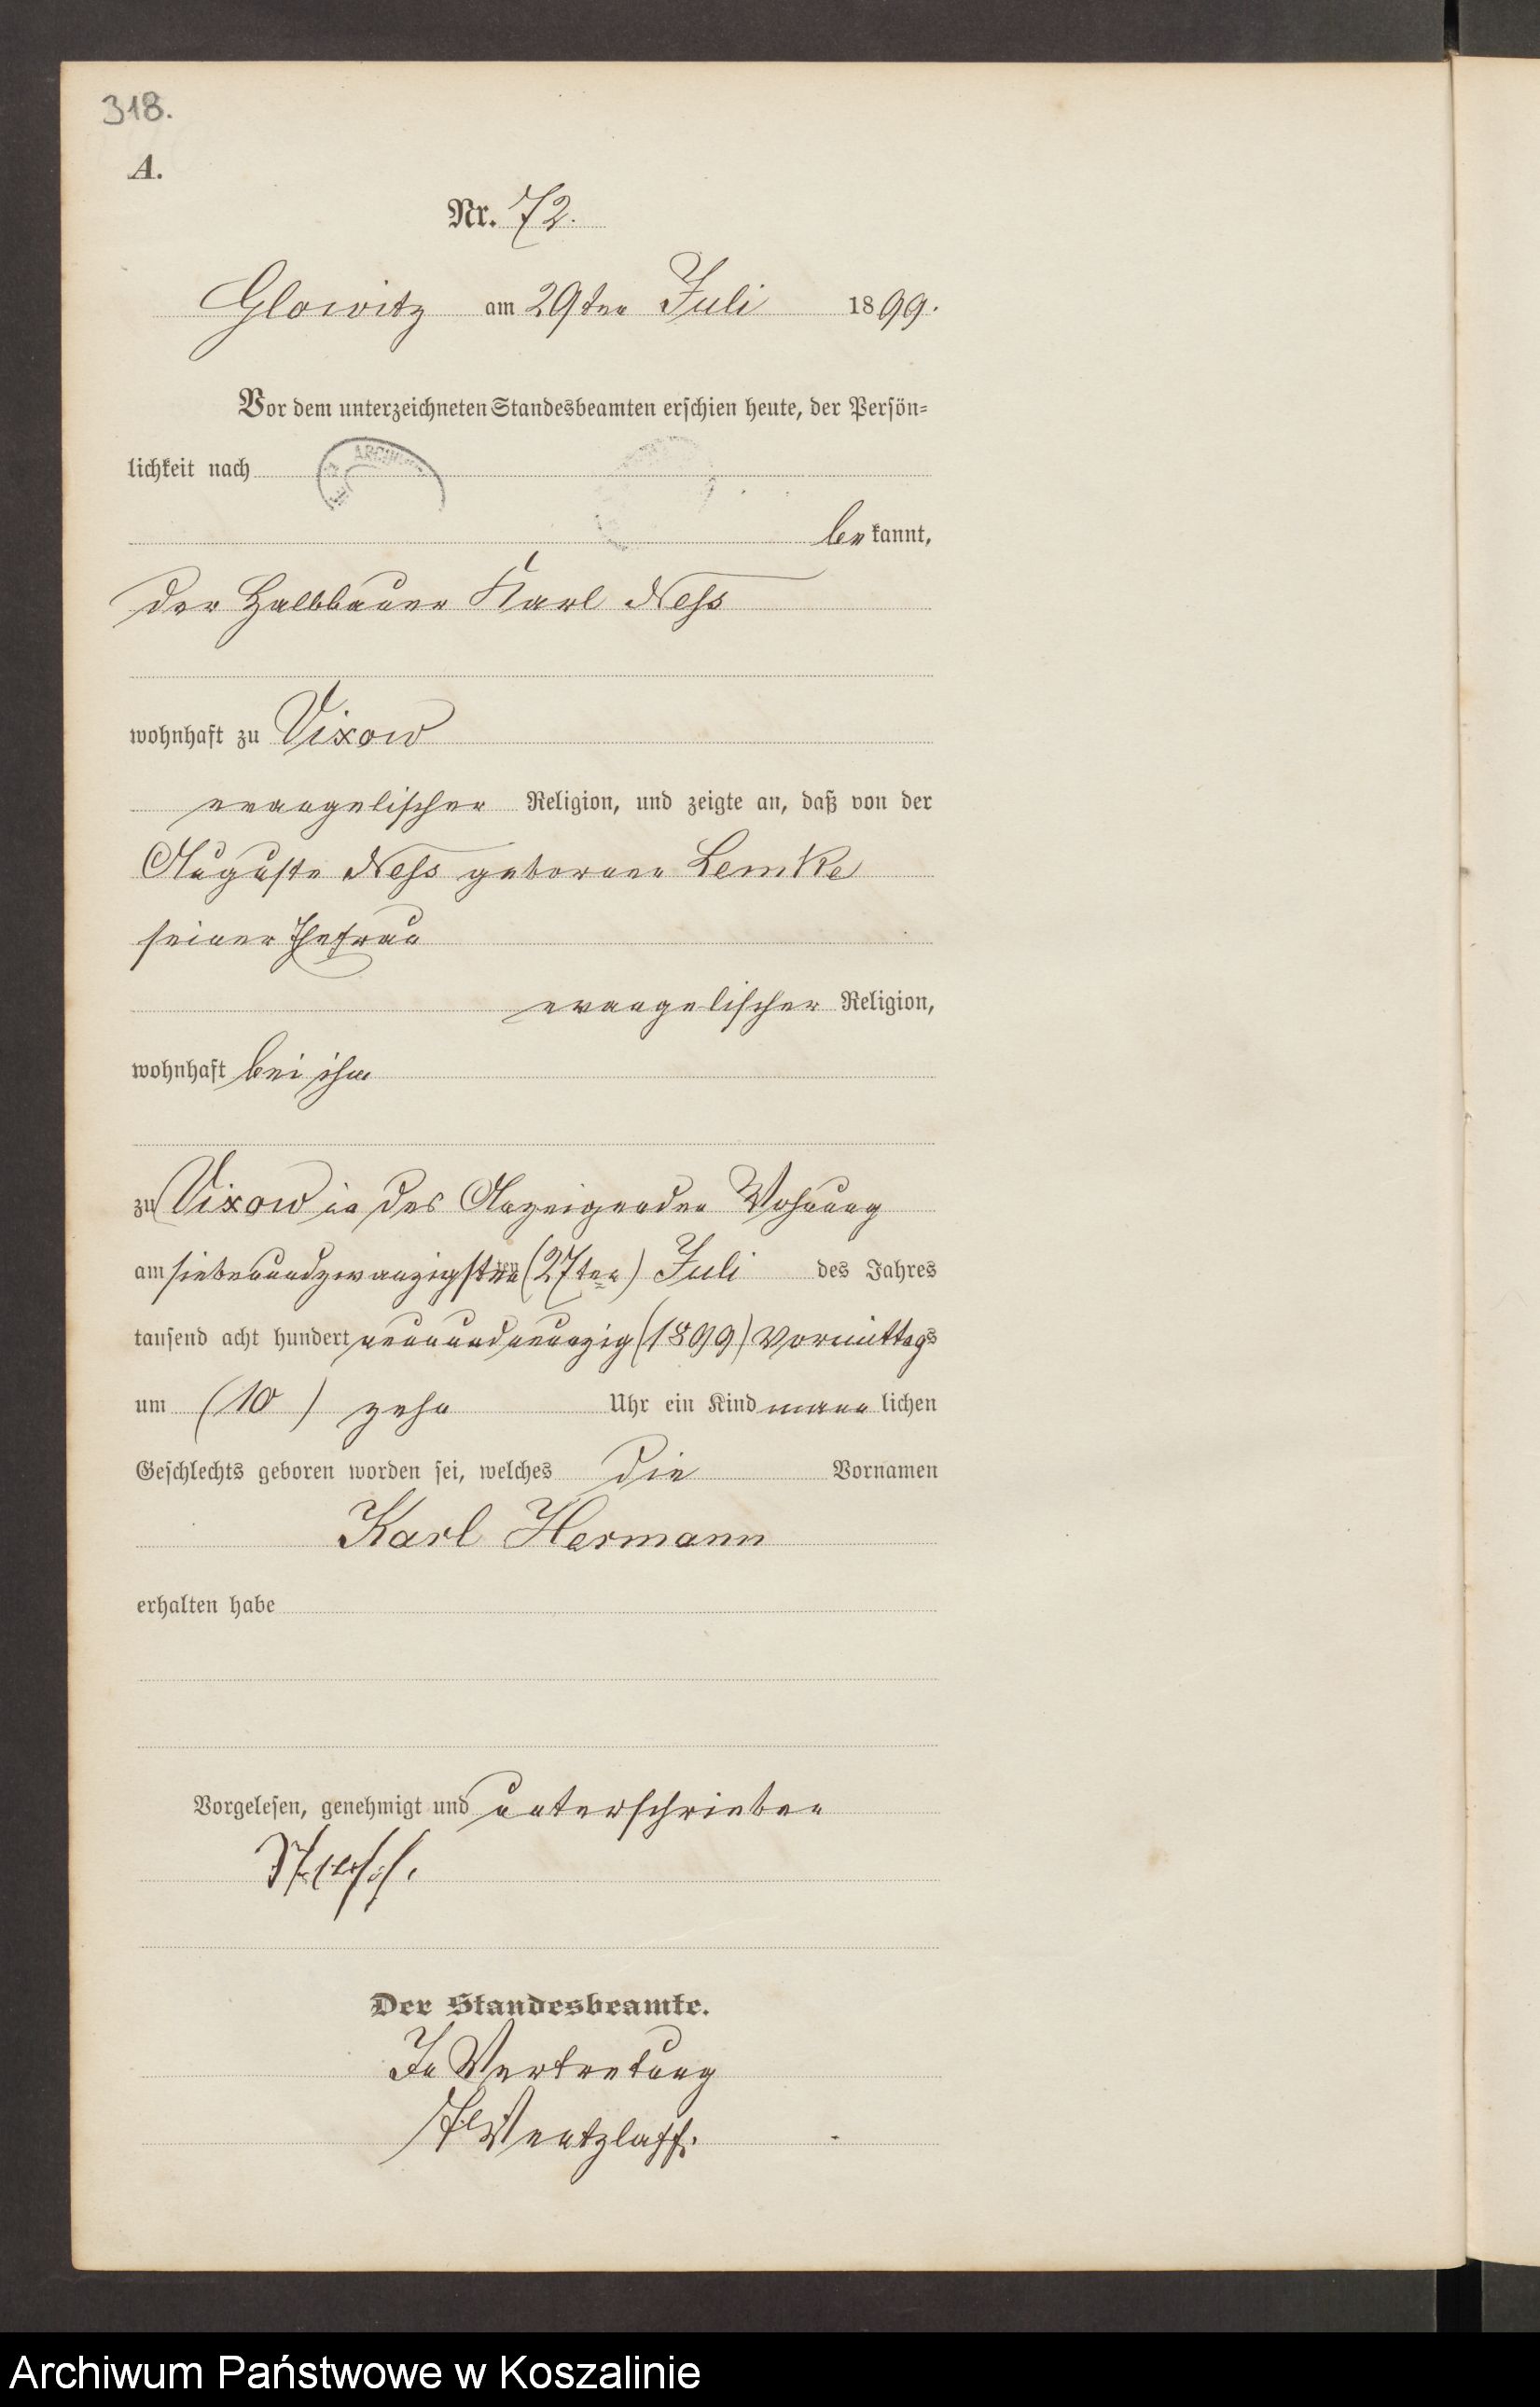 318.
A.
Nr. 72.
Glowitz am 29ten Juli 1899.
Vor dem unterzeichneten Standesbeamten erschien heute, der Persön-
lichkeit nach
ARCHIW
bekannt,
der Halbbauer Karl Ness
wohnhaft zu Vixow
evangelischer Religion, und zeigte an, daß von der
Auguste Ness geborene Lemke
seiner Ehefrau
evangelischer Religion,
wohnhaft bei ihm
zu Vixow in des Anzeigenden Wohnung
am siebenundzwanzigsten (27ten) Juli des Jahres
tausend acht hundert neunundneunzig (1899) Vormittags
um (10) zehn Uhr ein Kind mann lichen
Geschlechts geboren worden sei, welches die Vornamen
Karl Hermann
erhalten habe
Vorgelesen, genehmigt und unterschrieben
Der Standesbeamte.
In Vertretung
Wentzlaff.
Archiwum Państwowe w Koszalinie